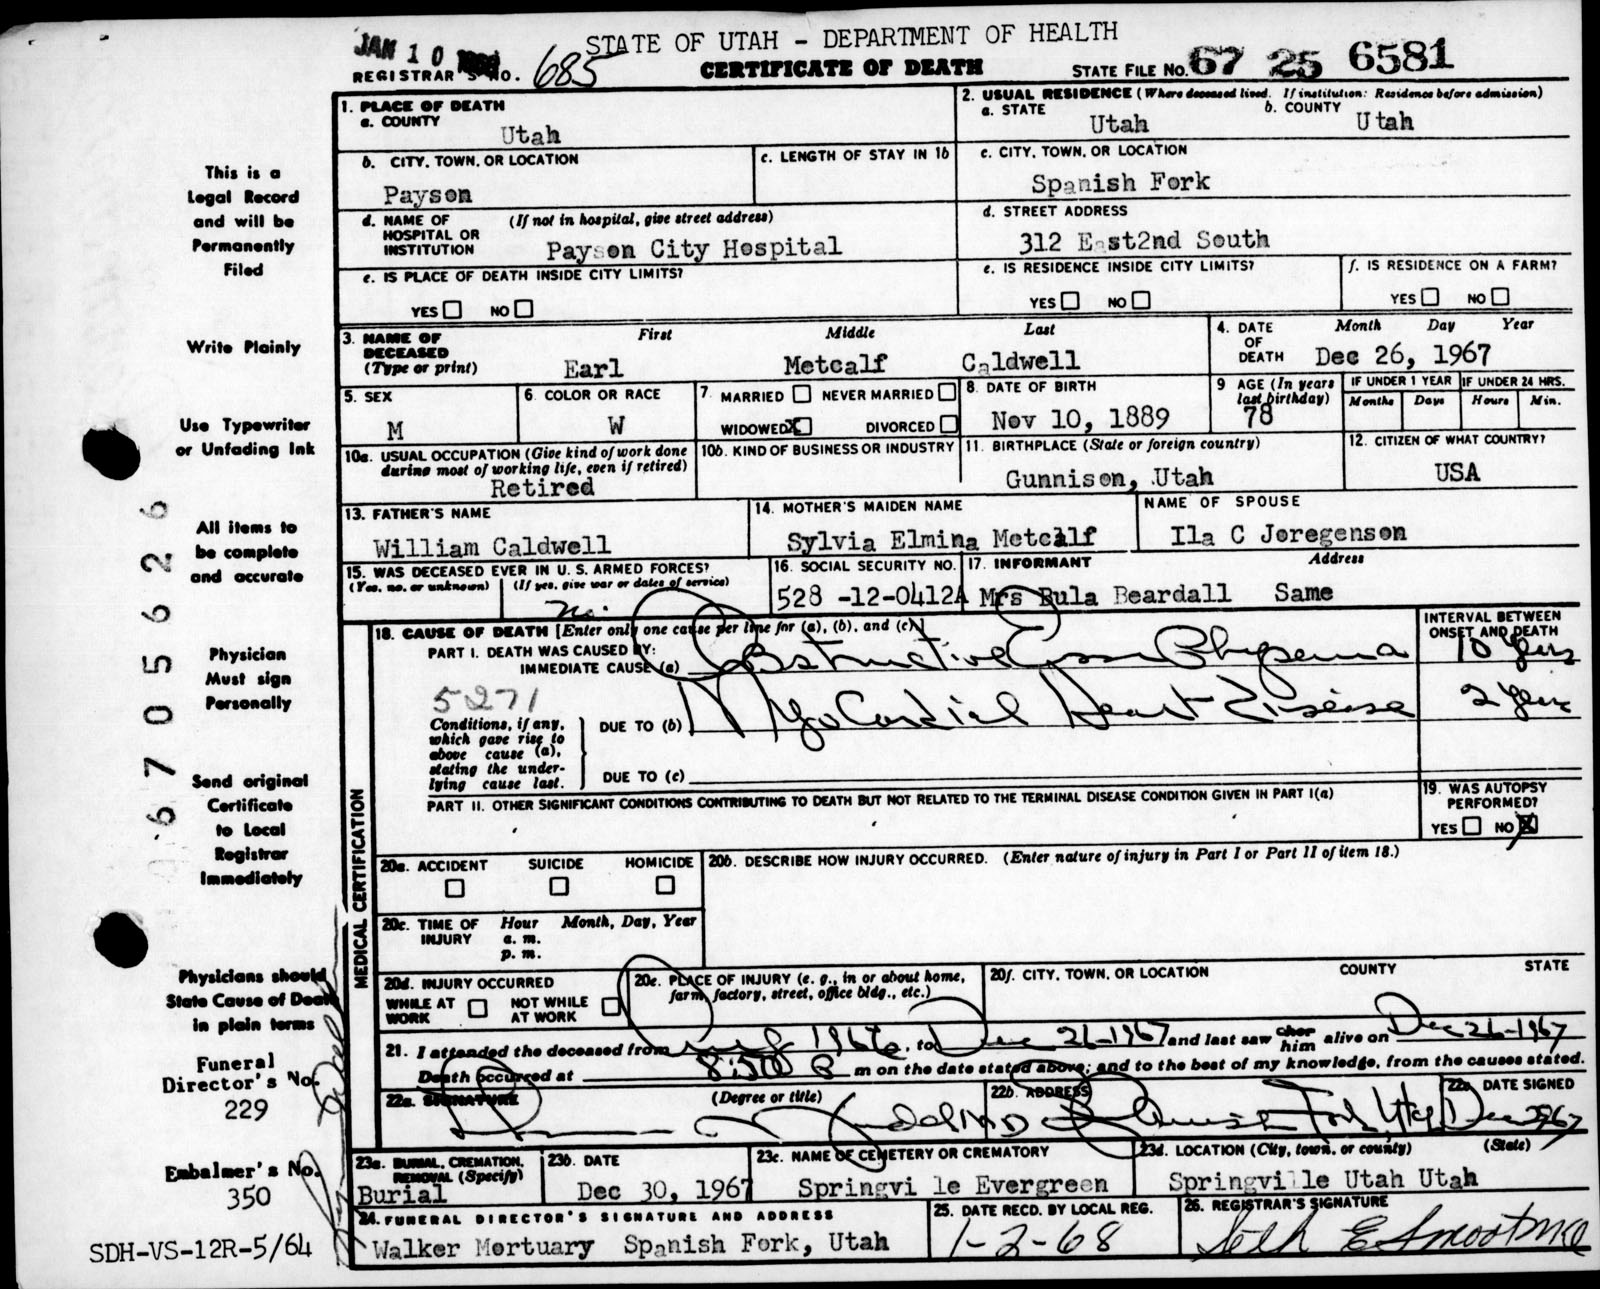 JAN 10
STATE OF UTAH - DEPARTMENT OF HEALTH
REGISTRAR'S NO. 685 CERTIFICATE OF DEATH STATE FILE NO. 67 25 6581
1. PLACE OF DEATH
a. COUNTY
Utah
2. USUAL RESIDENCE (Where deceased lived. If institution: Residence before admission)
a. STATE b. COUNTY
Utah Utah
b. CITY, TOWN, OR LOCATION
Payson
c. LENGTH OF STAY IN 1b
c. CITY, TOWN, OR LOCATION
Spanish Fork
d. NAME OF (If not in hospital, give street address)
HOSPITAL OR
INSTITUTION Payson City Hospital
d. STREET ADDRESS
312 East2nd South
e. IS PLACE OF DEATH INSIDE CITY LIMITS?
YES NO
e. IS RESIDENCE INSIDE CITY LIMITS?
YES NO
f. IS RESIDENCE ON A FARM?
YES NO
3. NAME OF First Middle Last
DECEASED
(Type or print) Earl Metcalf Caldwell
4. DATE Month Day Year
OF
DEATH Dec 26, 1967
5. SEX
M
6. COLOR OR RACE
W
7. MARRIED NEVER MARRIED
WIDOWED X DIVORCED
8. DATE OF BIRTH
Nov 10, 1889
9 AGE (In years
last birthday)
78
IF UNDER 1 YEAR IF UNDER 24 HRS.
Months Days Hours Min.
10a. USUAL OCCUPATION (Give kind of work done
during most of working life, even if retired)
Retired
10b. KIND OF BUSINESS OR INDUSTRY
11. BIRTHPLACE (State or foreign country)
Gunnison, Utah
12. CITIZEN OF WHAT COUNTRY?
USA
13. FATHER'S NAME
William Caldwell
14. MOTHER'S MAIDEN NAME
Sylvia Elmina Metcalf
NAME OF SPOUSE
Ila C Joregenson
15. WAS DECEASED EVER IN U. S. ARMED FORCES?
(Yes, no, or unknown) (If yes, give war or dates of service)
no.
16. SOCIAL SECURITY NO.
528 -12-0412A
17. INFORMANT Address
Mrs Eula Beardall Same
MEDICAL CERTIFICATION
18. CAUSE OF DEATH [Enter only one cause per line for (a), (b), and (c)]
INTERVAL BETWEEN
ONSET AND DEATH
PART I. DEATH WAS CAUSED BY:
IMMEDIATE CAUSE (a) Obstructive Emphysema 10 Years
5271
Conditions, if any,
which gave rise to
above cause (a),
stating the under-
lying cause last.
DUE TO (b) Myocardial Heart Disease 2 Years
DUE TO (c)
PART II. OTHER SIGNIFICANT CONDITIONS CONTRIBUTING TO DEATH BUT NOT RELATED TO THE TERMINAL DISEASE CONDITION GIVEN IN PART I(a)
19. WAS AUTOPSY
PERFORMED?
YES NO X
20a. ACCIDENT SUICIDE HOMICIDE
20b. DESCRIBE HOW INJURY OCCURRED. (Enter nature of injury in Part I or Part II of item 18.)
20c. TIME OF Hour Month, Day, Year
INJURY a. m.
p. m.
20d. INJURY OCCURRED
WHILE AT NOT WHILE
WORK AT WORK
20e. PLACE OF INJURY (e. g., in or about home,
farm, factory, street, office bldg., etc.)
20f. CITY, TOWN, OR LOCATION COUNTY STATE
21. I attended the deceased from Aug 1966, to Dec 26-1967 and last saw her him alive on Dec 26-1967
Death occurred at 8:50 P m on the date stated above; and to the best of my knowledge, from the causes stated.
22a. SIGNATURE (Degree or title)
MD
22b. ADDRESS
Spanish Fork Utah
22c. DATE SIGNED
23a. BURIAL, CREMATION,
REMOVAL (Specify)
Burial
23b. DATE
Dec 30, 1967
23c. NAME OF CEMETERY OR CREMATORY
Springvi le Evergreen
23d. LOCATION (City, town, or county) (State)
Springville Utah Utah
24. FUNERAL DIRECTOR'S SIGNATURE AND ADDRESS
Walker Mortuary Spanish Fork, Utah
25. DATE RECD. BY LOCAL REG.
1-2-68
26. REGISTRAR'S SIGNATURE
Seth E Smoot MD
This is a
Legal Record
and will be
Permanently
Filed
Write Plainly
Use Typewriter
or Unfading Ink
All items to
be complete
and accurate
Physician
Must sign
Personally
Send original
Certificate
to Local
Registrar
Immediately
Physicians should
State Cause of Death
in plain terms
Funeral
Director's No.
229
Embalmer's No.
350
SDH-VS-12R-5/64
6705626